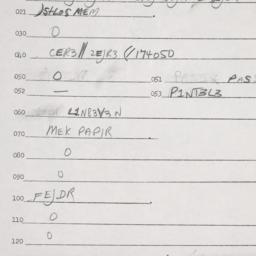 021 JSHLOSMEM
030 0
040 CER3// 2EJR3 (/174050
050 0 051 PAS
052 — 053 P1NT3L3
060 L1N83V3N
070 MEK PAPIR
080 0
090 0
100 FEJDR
110 0
120 0